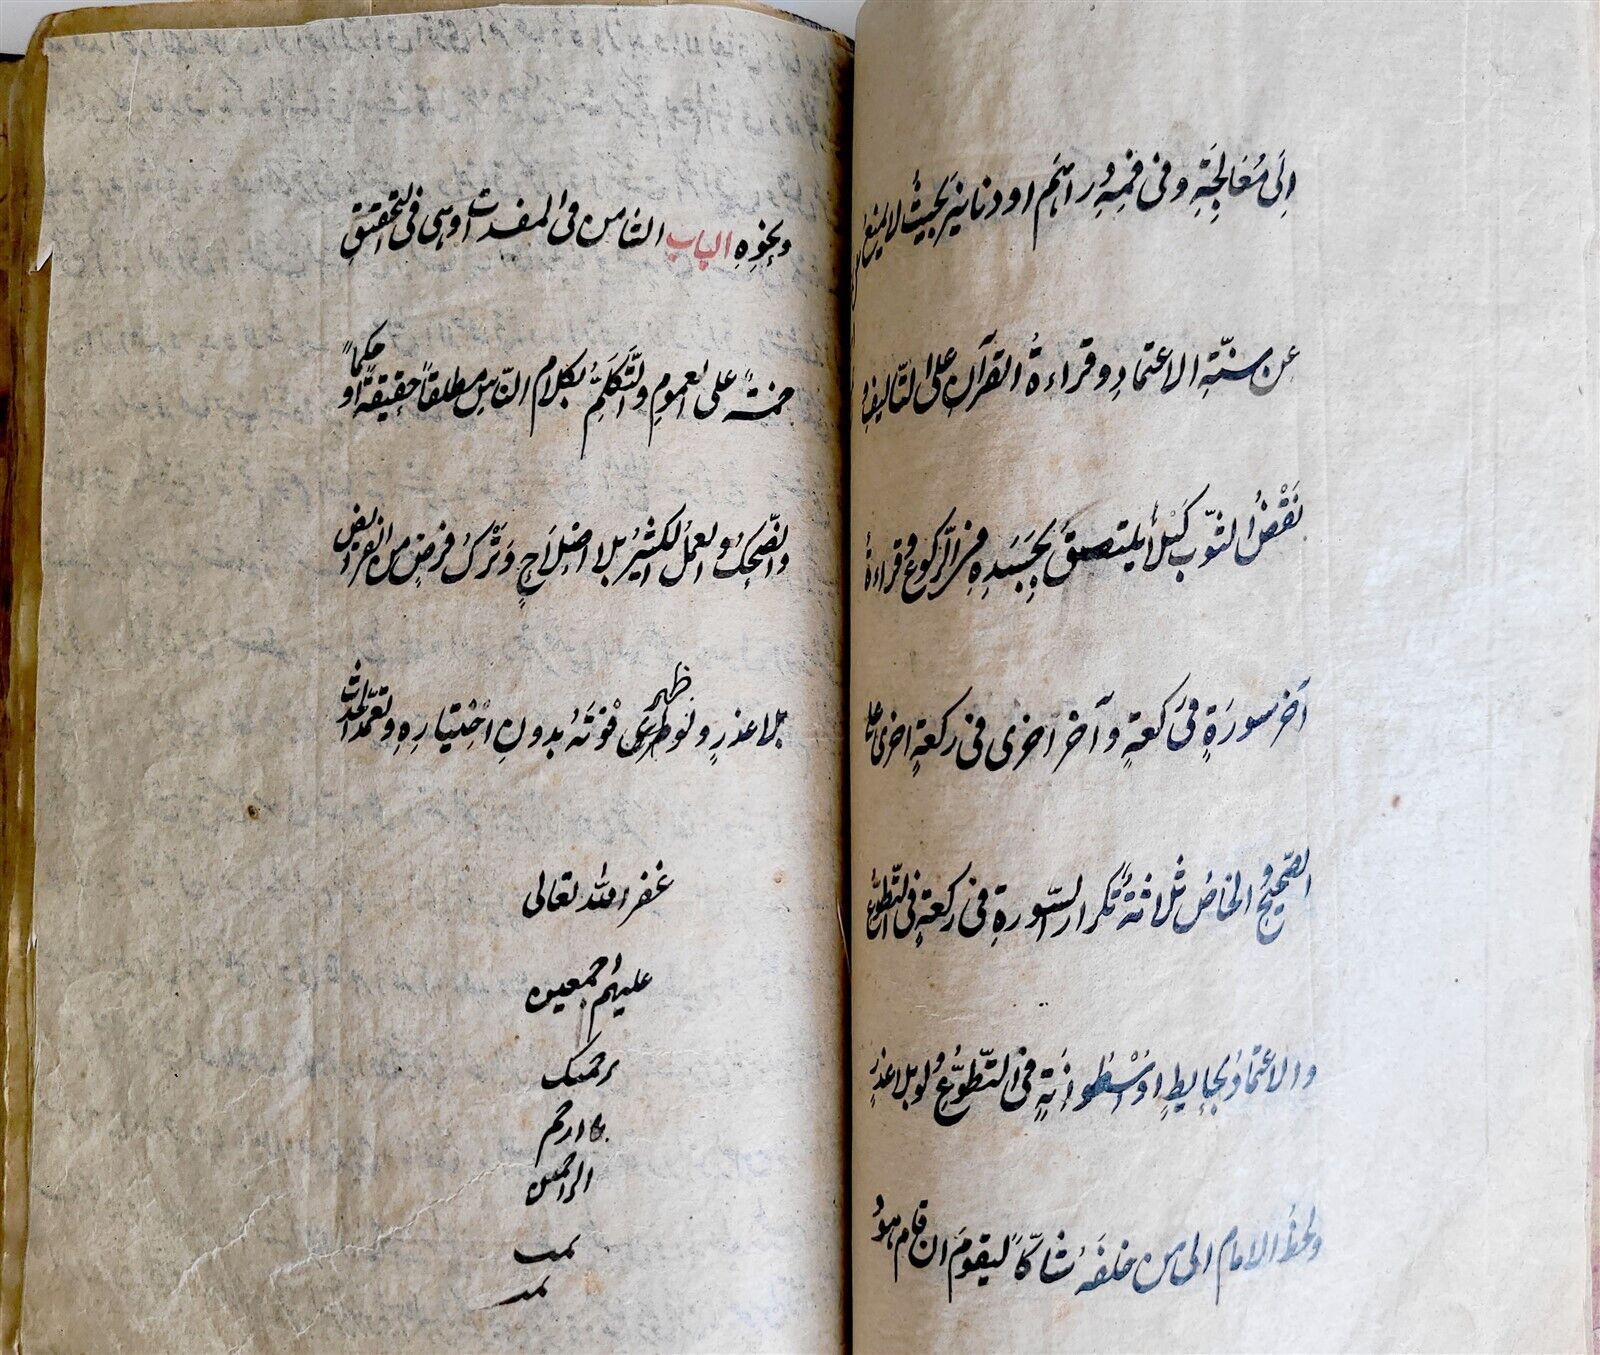 الى معالجة وفى فمه دراهم او دنانير بحيث لا يمنع
عن سنة الاعتماد وقراءة القرآن على التأليف و
نفض الثوب كيلا يلتصق بجسده من الركوع وقراءة
آخر سورة فى ركعة وآخر اخرى فى ركعة اخرى على
الصحيح والخاص ثلاثة تكرار السورة فى ركعة فى التطوع
والاعتماد بحايط او أسطوانة فى التطوع ولو بلا عذر
ولحظ الامام الى من خلفه شاكا ليقوم ان قام هو
ونحوه الباب الثامن فى المفسدات وهى فى التحقيق
خمسة على العموم والتكلم بكلام الناس مطلقا حقيقة او حكما
والضحك والعمل الكثير بلا اصلاح وترك فرض من الفرايض
بلا عذر ولو طرى ظهر فوته بدون اختياره وتعمد الحدث
غفر الله تعالى
عليهم اجمعين
برحمتك
يا ارحم
الراحمين
تمت
تمت